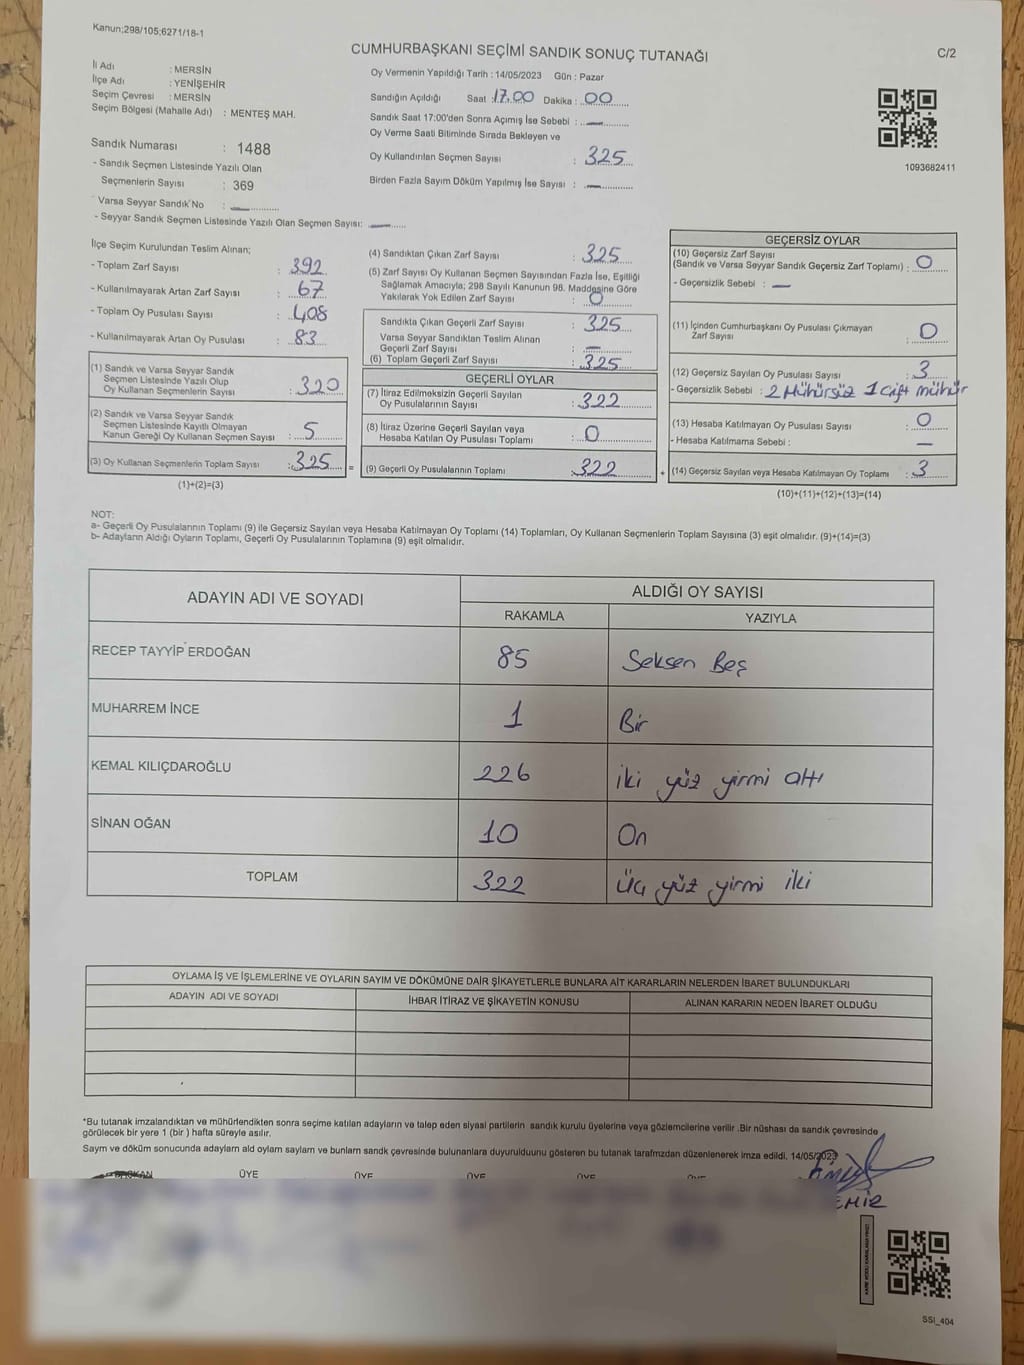 Kanun;298/105;6271/18-1
CUMHURBAŞKANI SEÇİMİ SANDIK SONUÇ TUTANAĞI
C/2
İl Adı : MERSİN
İlçe Adı : YENİŞEHİR
Seçim Çevresi : MERSİN
Seçim Bölgesi (Mahalle Adı) : MENTEŞ MAH.
Sandık Numarası : 1488
- Sandık Seçmen Listesinde Yazılı Olan
Seçmenlerin Sayısı : 369
Varsa Seyyar Sandık No :
- Seyyar Sandık Seçmen Listesinde Yazılı Olan Seçmen Sayısı:
Oy Vermenin Yapıldığı Tarih : 14/05/2023 Gün : Pazar
Sandığın Açıldığı Saat : 17.00 Dakika : 00
Sandık Saat 17:00'den Sonra Açımış İse Sebebi : —
Oy Verme Saati Bitiminde Sırada Bekleyen ve
Oy Kullandırılan Seçmen Sayısı : 325
Birden Fazla Sayım Döküm Yapılmış İse Sayısı : —
1093682411
İlçe Seçim Kurulundan Teslim Alınan;
- Toplam Zarf Sayısı : 392
- Kullanılmayarak Artan Zarf Sayısı : 67
- Toplam Oy Pusulası Sayısı : 408
- Kullanılmayarak Artan Oy Pusulası : 83
(1) Sandık ve Varsa Seyyar Sandık
Seçmen Listesinde Yazılı Olup
Oy Kullanan Seçmenlerin Sayısı : 320
(2) Sandık ve Varsa Seyyar Sandık
Seçmen Listesinde Kayıtlı Olmayan
Kanun Gereği Oy Kullanan Seçmen Sayısı : 5
(3) Oy Kullanan Seçmenlerin Toplam Sayısı : 325 =
(1)+(2)=(3)
(4) Sandıktan Çıkan Zarf Sayısı : 325
(5) Zarf Sayısı Oy Kullanan Seçmen Sayısından Fazla İse, Eşitliği
Sağlamak Amacıyla; 298 Sayılı Kanunun 98. Maddesine Göre
Yakılarak Yok Edilen Zarf Sayısı : 0
Sandıkta Çıkan Geçerli Zarf Sayısı : 325
Varsa Seyyar Sandıktan Teslim Alınan
Geçerli Zarf Sayısı : —
(6) Toplam Geçerli Zarf Sayısı : 325
GEÇERLİ OYLAR
(7) İtiraz Edilmeksizin Geçerli Sayılan
Oy Pusulalarının Sayısı : 322
(8) İtiraz Üzerine Geçerli Sayılan veya
Hesaba Katılan Oy Pusulası Toplamı : 0
(9) Geçerli Oy Pusulalarının Toplamı : 322 +
GEÇERSİZ OYLAR
(10) Geçersiz Zarf Sayısı
(Sandık ve Varsa Seyyar Sandık Geçersiz Zarf Toplamı) : 0
- Geçersizlik Sebebi : —
(11) İçinden Cumhurbaşkanı Oy Pusulası Çıkmayan
Zarf Sayısı : 0
(12) Geçersiz Sayılan Oy Pusulası Sayısı : 3
- Geçersizlik Sebebi : 2 Mühürsüz 1 Çift mühür
(13) Hesaba Katılmayan Oy Pusulası Sayısı : 0
- Hesaba Katılmama Sebebi : —
(14) Geçersiz Sayılan veya Hesaba Katılmayan Oy Toplamı : 3
(10)+(11)+(12)+(13)=(14)
NOT:
a- Geçerli Oy Pusulalarının Toplamı (9) ile Geçersiz Sayılan veya Hesaba Katılmayan Oy Toplamı (14) Toplamları, Oy Kullanan Seçmenlerin Toplam Sayısına (3) eşit olmalıdır. (9)+(14)=(3)
b- Adayların Aldığı Oyların Toplamı, Geçerli Oy Pusulalarının Toplamına (9) eşit olmalıdır.
ADAYIN ADI VE SOYADI
ALDIĞI OY SAYISI
RAKAMLA YAZIYLA
RECEP TAYYİP ERDOĞAN 85 Seksen Beş
MUHARREM İNCE 1 Bir
KEMAL KILIÇDAROĞLU 226 iki yüz yirmi altı
SİNAN OĞAN 10 On
TOPLAM 322 üç yüz yirmi iki
OYLAMA İŞ VE İŞLEMLERİNE VE OYLARIN SAYIM VE DÖKÜMÜNE DAİR ŞİKAYETLERLE BUNLARA AİT KARARLARIN NELERDEN İBARET BULUNDUKLARI
ADAYIN ADI VE SOYADI İHBAR İTİRAZ VE ŞİKAYETİN KONUSU ALINAN KARARIN NEDEN İBARET OLDUĞU
*Bu tutanak imzalandıktan ve mühürlendikten sonra seçime katılan adayların ve talep eden siyasi partilerin sandık kurulu üyelerine veya gözlemcilerine verilir .Bir nüshası da sandık çevresinde
görülecek bir yere 1 (bir ) hafta süreyle asılır.
Sayım ve döküm sonucunda adayların ald oyların sayların ve bunların sandk çevresinde bulunanlara duyurulduunu gösteren bu tutanak tarafmzdan düzenlenerek imza edildi, 14/05/2023
BAŞKAN ÜYE ÜYE ÜYE ÜYE
SSI_404